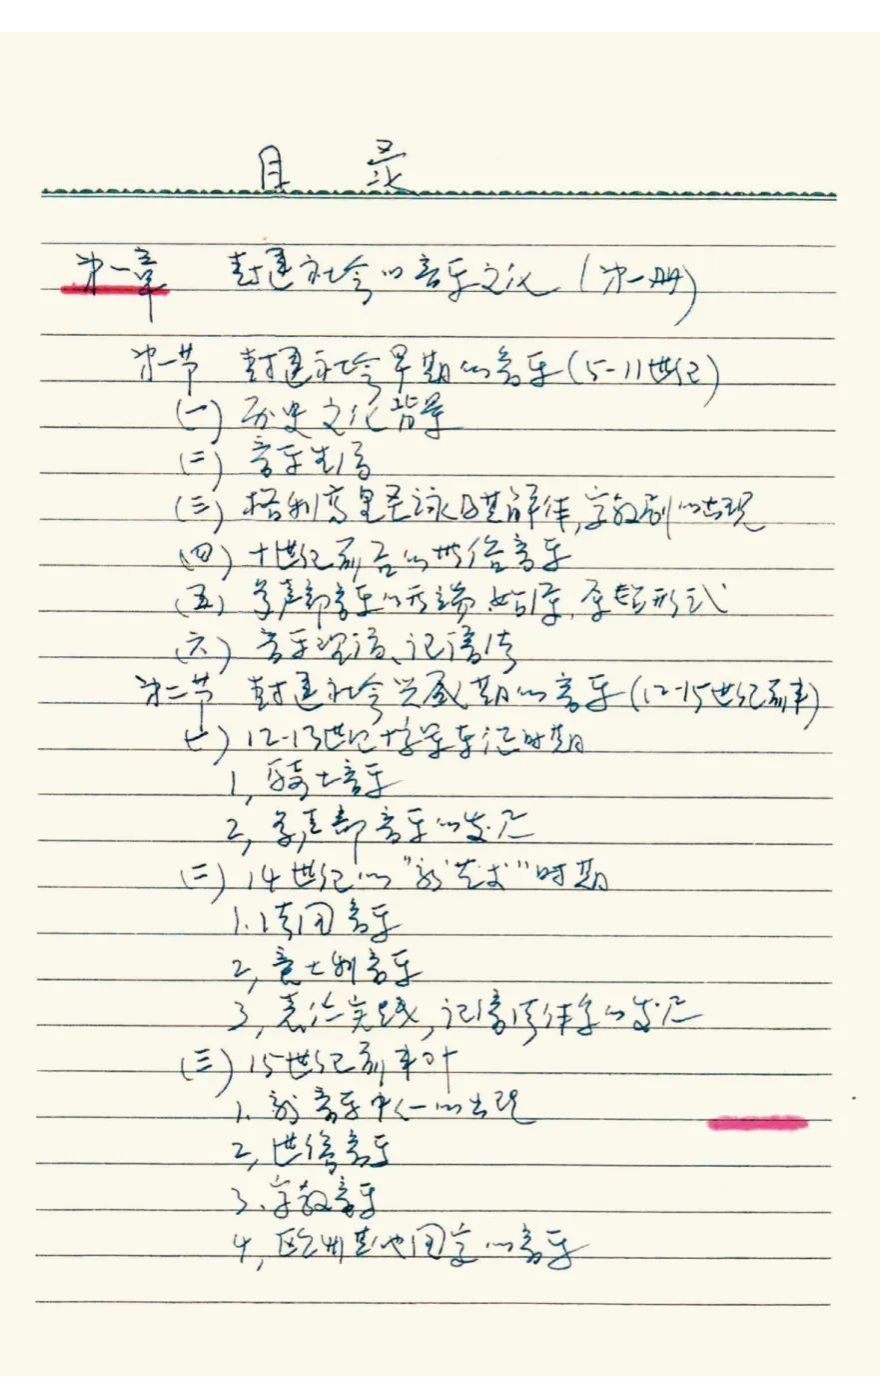 目 录
第一章 封建社会的音乐文化(第一册)
第一节 封建社会早期的音乐(5-11世纪)
(一)历史文化背景
(二)音乐生活
(三)格利高里圣咏及其解体,宗教剧的出现
(四)十世纪前后的世俗音乐
(五)多声部音乐的开端、始原,原始形式
(六)音乐理论、记谱法
第二节 封建社会兴盛期的音乐(12-15世纪前半)
(一)12-13世纪十字军东征时期
1,骑士音乐
2,多声部音乐的发展
(二)14世纪的“新艺术”时期
1.法国音乐
2,意大利音乐
3,表演实践,记谱法体系的发展
(三)15世纪前半叶
1.新音乐中心的出现
2,世俗音乐
3.宗教音乐
4,欧洲其他国家的音乐